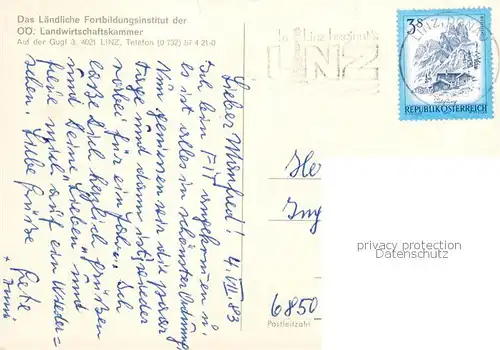 Das Ländliche Fortbildungsinstitut der
OÖ. Landwirtschaftskammer
Auf der Gugl 3, 4021 LINZ, Telefon (0 732) 57 4 21-0
Lieber Manfred! 4. VII. 83
Ich bin FIT angekommen u.
es ist alles in schönster Ordnung
Nun geniessen wir die paar
Tage und dann ist wieder
vorbei für ein Jahr. Ich
lasse Dich herzlich grüßen
und Deine Lieben und
freue mich auf ein Wieder=
sehen. Liebe Grüße
In Linz beginnt's
LINZ
LINZ, DONAU
3S
REPUBLIK ÖSTERREICH
He
Ing
6850
Postleitzahl
privacy protection
Datenschutz